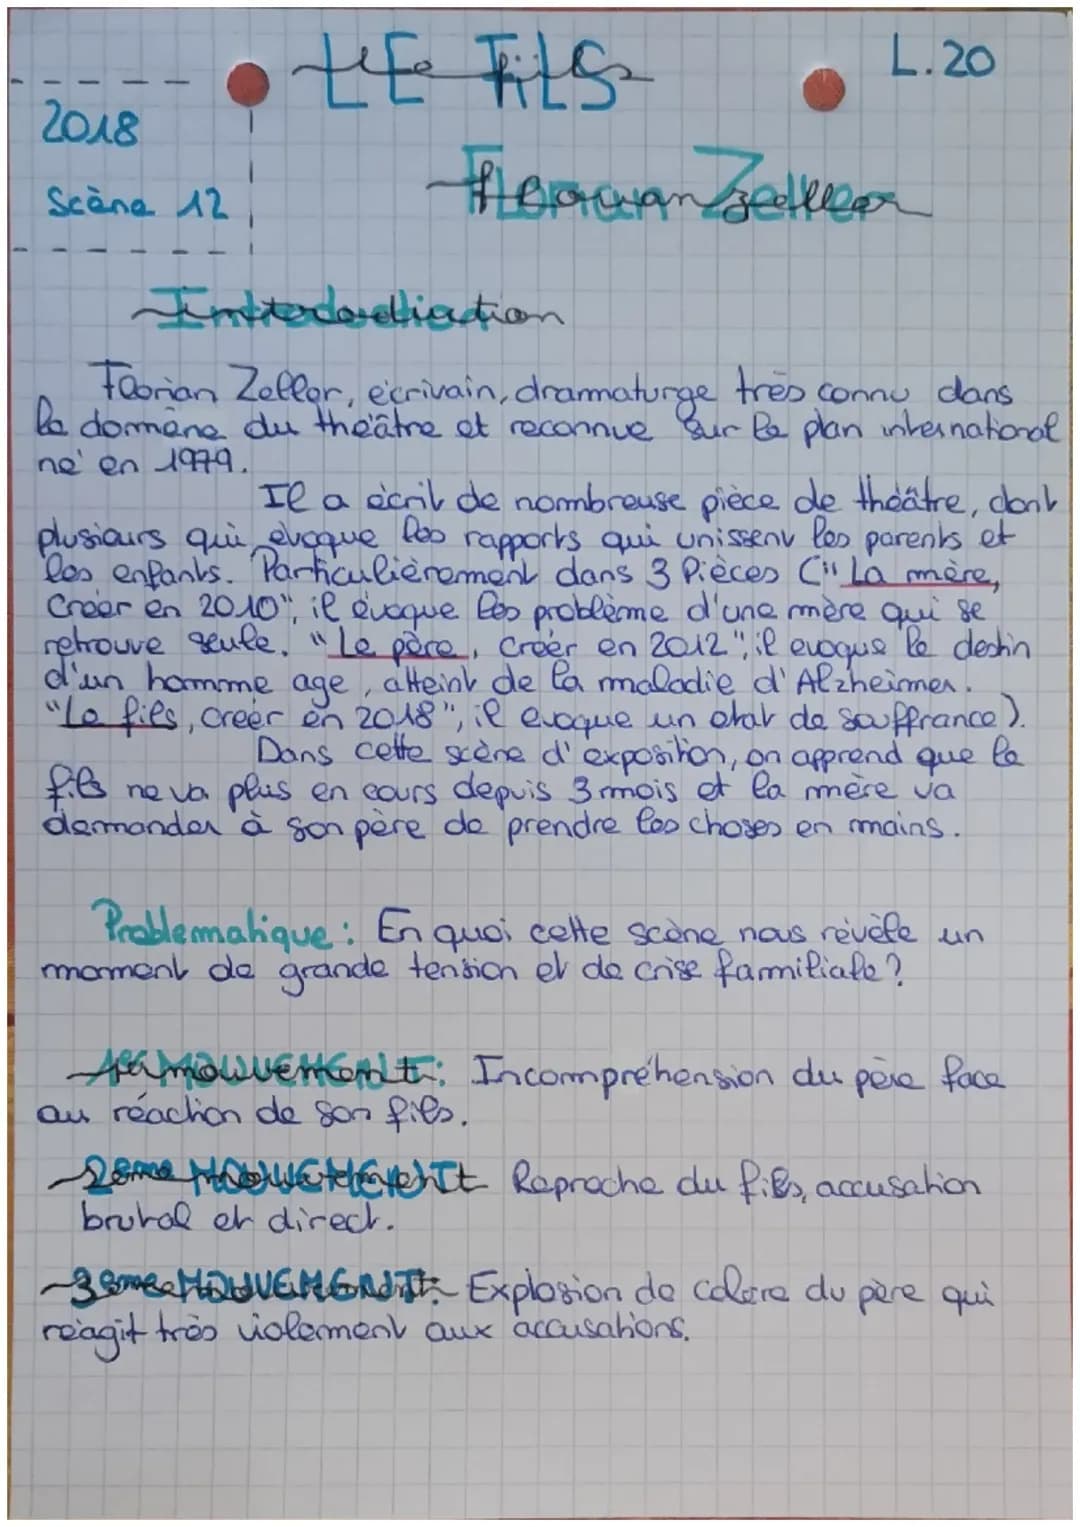 LE FiLS
L.20
2018
Scène 12
Florian Zeller
Introduction
Florian Zeller, écrivain, drammaturge très connu dans
le domaine du théâtre et reconnue sur le plan international
né en 1979.
Il a écrit de nombreuse pièce de théâtre, dont
plusieurs qui évoque les rapports qui unissent les parents et
les enfants. Particulièrement dans 3 Pièces ("La mère,
Créer en 2010", il évoque les problème d'une mère qui se
retrouve seule. "Le père, Créer en 2012", il evoque le destin
d'un homme age, atteint de la maladie d'Alzheimer.
"Le fils, creer en 2018", il evoque un etat de souffrance).
Dans cette scène d'exposition, on apprend que le
fils ne va plus en cours depuis 3 mois et la mère va
demander à son père de prendre les choses en mains.
Problematique : En quoi cette scène nous révèle un
moment de grande tension et de crise familiale ?
1er MOUVEMENT : Incompréhension du père face
au réaction de son fils.
2ème MOUVEMENT Reproche du fils, accusation
brutal et direct.
3eme MOUVEMENT : Explosion de colère du père qui
réagit très violement aux accusations.